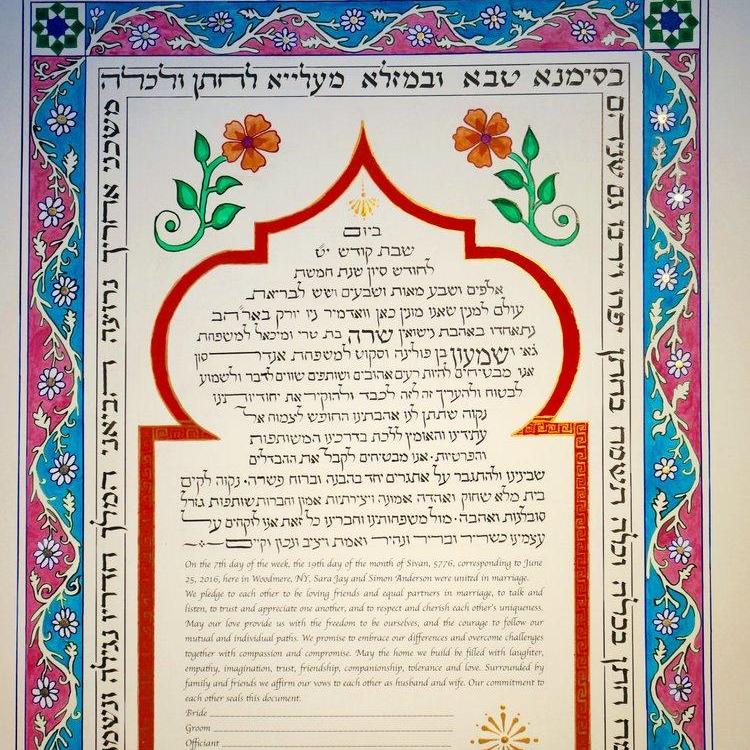 בסימנא טבא ובמזלא מעלייא לחתן ולכלה
משכני אחריך נרוצה הביאני המלך חדריו נגילה
ביום
שבת קודש יט
לחודש סיון שנת חמשת
אלפים ושבע מאות ושבעים ושש לבריאת
עולם למנין שאנו מונין כאן וואדמיר ניו יורק בארהב
נתאחדו באהבת נישואין שרה בת טרי ומיכאל למשפחת
גאי ושמעון בן פולינה וסקוט למשפחת אנדרסון
אנו מבטיחים להיות רעים אהובים ושותפים שווים לדבר ולשמוע
לבטוח ולהעריך זה לזה לכבד ולהוקיר את יחודיותנו
נקוה שתתן לנו אהבתינו החופש לצמוח אל
עתידינו והאומץ ללכת בדרכינו המשותפות
והפרטיות. אנו מבטיחים לקבל את ההבדלים
שבינינו ולהתגבר על אתגרים יחד בהבנה וברוח פשרה. נקוה לקים
בית מלא שחוק ואהדה אמונה ויצירתיות אמון וחברות שותפות גודל
סובלנות ואהבה. מול משפחותינו וחברינו כל זאת אנו לוקחים על
עצמינו כשריר ובריר ונהיר ואמת ויציב ונכון וקיים
On the 7th day of the week, the 19th day of the month of Sivan, 5776, corresponding to June
25, 2016, here in Woodmere, NY, Sara Jay and Simon Anderson were united in marriage.
We pledge to each other to be loving friends and equal partners in marriage, to talk and
listen, to trust and appreciate one another, and to respect and cherish each other's uniqueness.
May our love provide us with the freedom to be ourselves, and the courage to follow our
mutual and individual paths. We promise to embrace our differences and overcome challenges
together with compassion and compromise. May the home we build be filled with laughter,
empathy, imagination, trust, friendship, companionship, tolerance and love. Surrounded by
family and friends we affirm our vows to each other as husband and wife. Our commitment to
each other seals this document.
Bride
Groom
Officiant